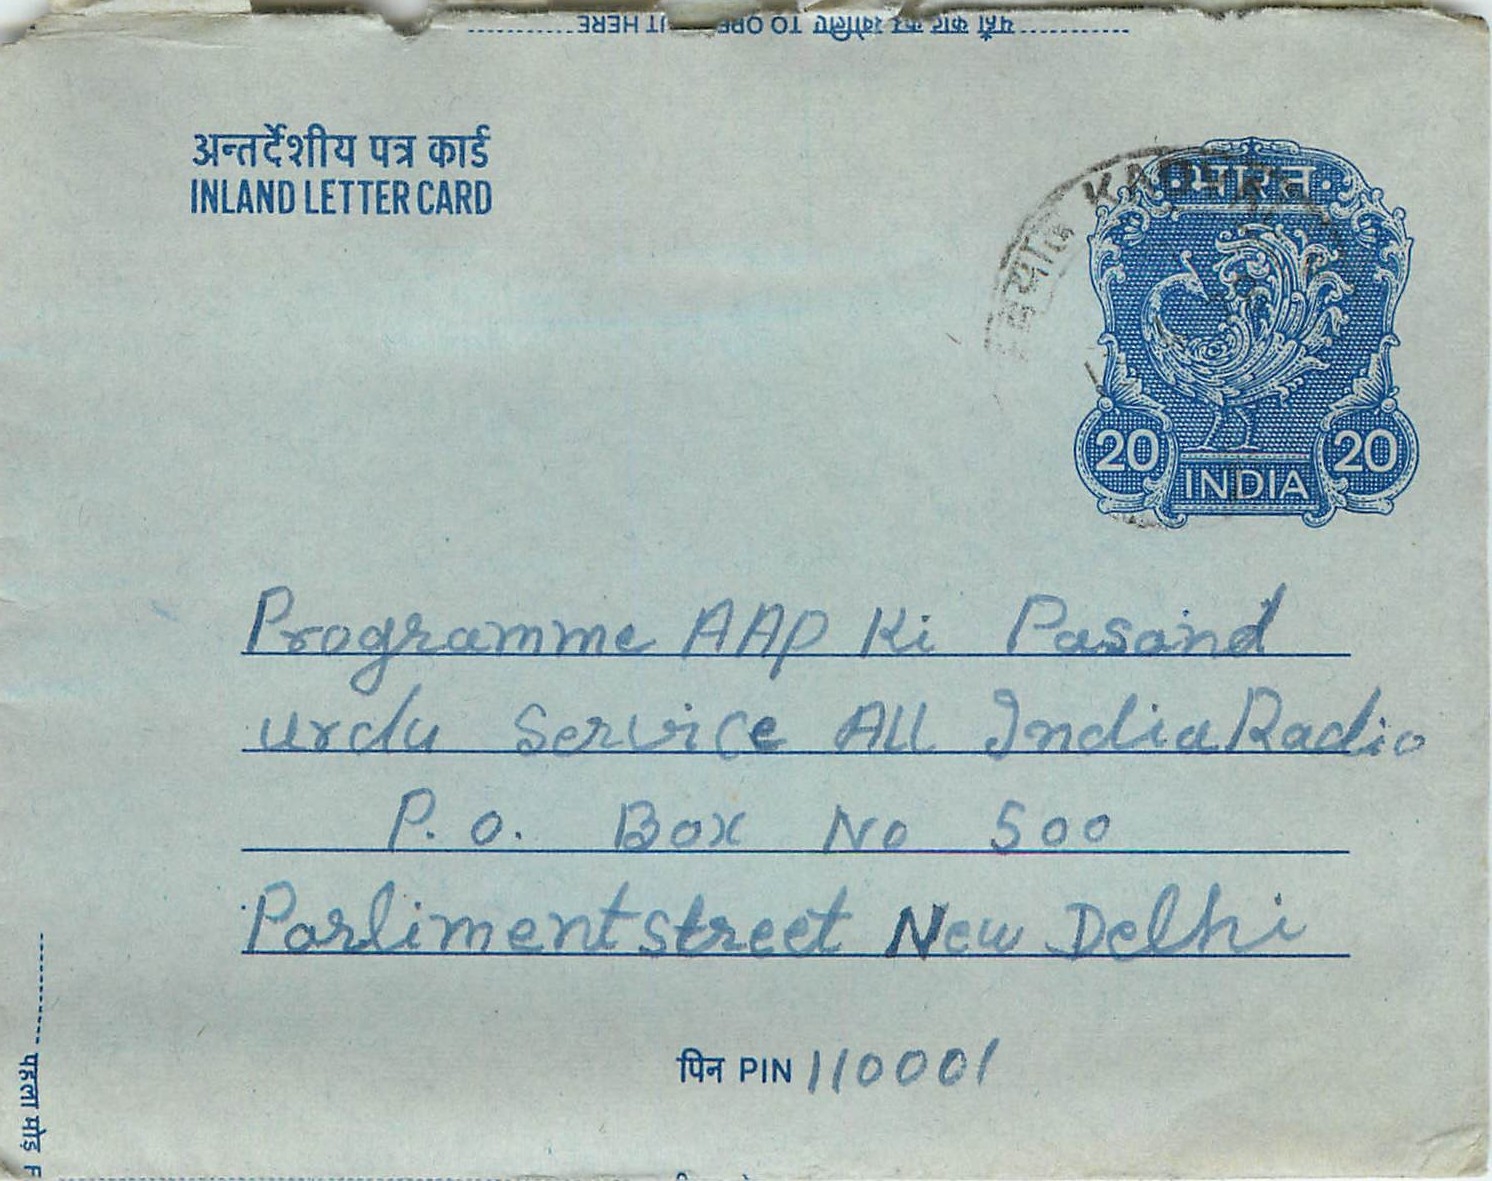 यहाँ काट कर खोलिए TO OPEN CUT HERE
अन्तर्देशीय पत्र कार्ड
INLAND LETTER CARD
भारत
20 20
INDIA
Programme AAP Ki Pasand
Urdu Service All India Radio
P. O. Box No 500
Parliment street New Delhi
पिन PIN 110001
पहला मोड़ F